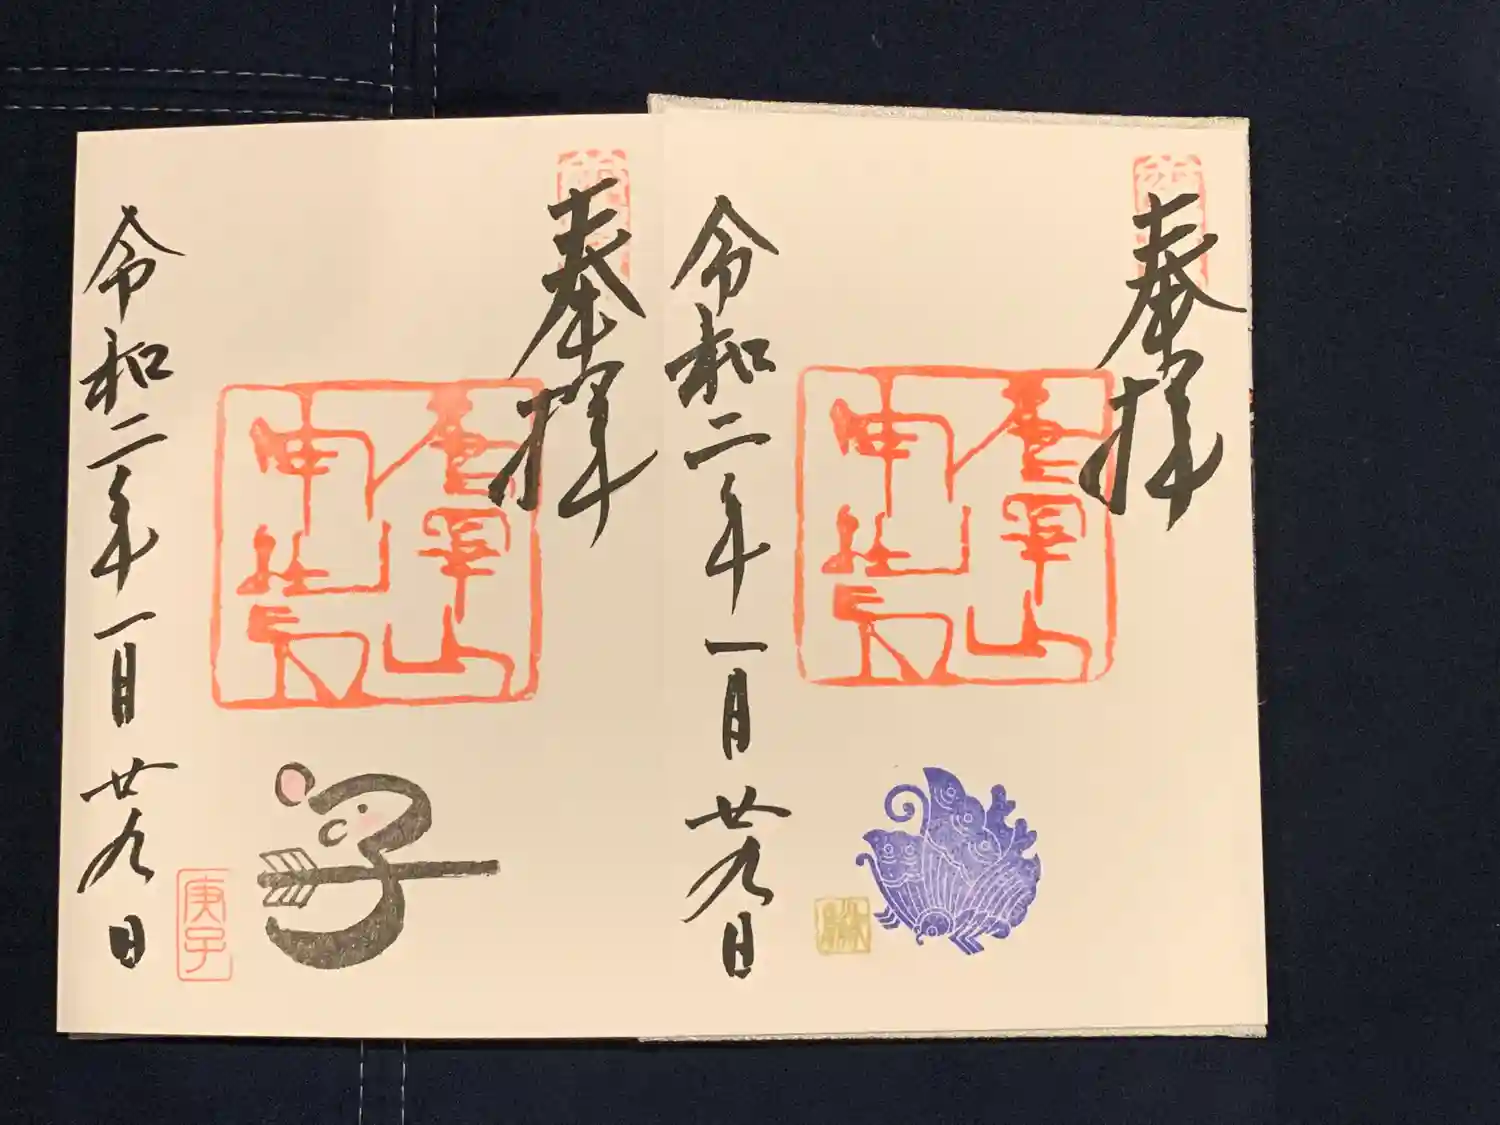 奉拝
唐澤山
神社
令和二年一月廿九日
奉拝
唐澤山
神社
子
庚子
令和二年一月廿九日